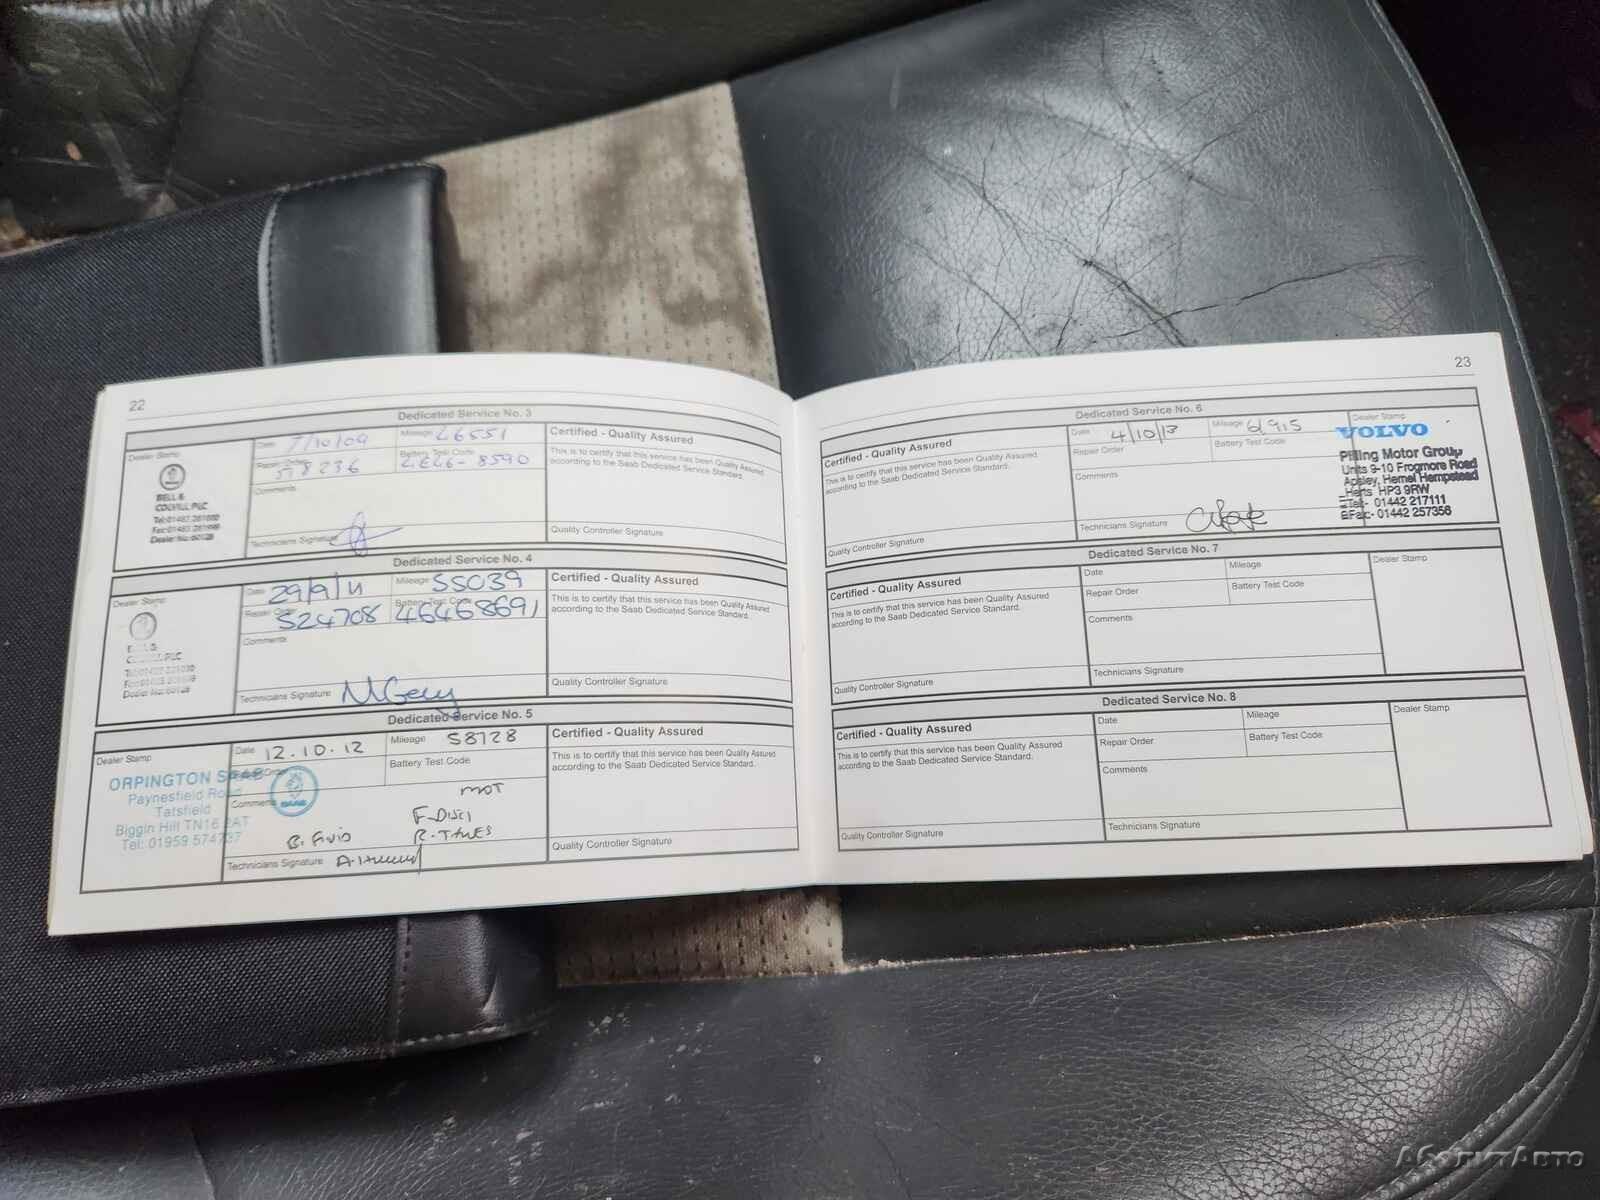 22
Dedicated Service No. 3
Dealer Stamp
BELL &
COLVILL PLC
Dealer No: 60128
Date 7/10/09
Mileage 46551
Repair Order 518236
Battery Test Code 4E46-8590
Comments
Technicians Signature
Certified - Quality Assured
This is to certify that this service has been Quality Assured
according to the Saab Dedicated Service Standard.
Quality Controller Signature
Dedicated Service No. 4
Dealer Stamp
Date 29/9/11
Mileage 55039
Repair Order 524708
Battery Test Code 46468691
Comments
Technicians Signature
Certified - Quality Assured
This is to certify that this service has been Quality Assured
according to the Saab Dedicated Service Standard.
Quality Controller Signature
Dedicated Service No. 5
Dealer Stamp
ORPINGTON SAAB
Paynesfield Road
Tatsfield
Biggin Hill TN16 2AT
Tel: 01959 574737
SAAB
Date 12.10.12
Mileage 58728
Battery Test Code
Comments
MOT
B. Fluid
F-Discs
R-Tyres
Technicians Signature
Certified - Quality Assured
This is to certify that this service has been Quality Assured
according to the Saab Dedicated Service Standard.
Quality Controller Signature
23
Dedicated Service No. 6
Certified - Quality Assured
This is to certify that this service has been Quality Assured
according to the Saab Dedicated Service Standard.
Quality Controller Signature
Date 4/10/13
Mileage 61915
Repair Order
Battery Test Code
Comments
Technicians Signature
Dealer Stamp
VOLVO
Pilling Motor Group
Units 9-10 Frogmore Road
Apsley, Hemel Hempstead
Herts HP3 9RW
Tel:- 01442 217111
Fax:- 01442 257356
Dedicated Service No. 7
Certified - Quality Assured
This is to certify that this service has been Quality Assured
according to the Saab Dedicated Service Standard.
Quality Controller Signature
Date
Mileage
Repair Order
Battery Test Code
Comments
Technicians Signature
Dealer Stamp
Dedicated Service No. 8
Certified - Quality Assured
This is to certify that this service has been Quality Assured
according to the Saab Dedicated Service Standard.
Quality Controller Signature
Date
Mileage
Repair Order
Battery Test Code
Comments
Technicians Signature
Dealer Stamp
АбсолютАвто